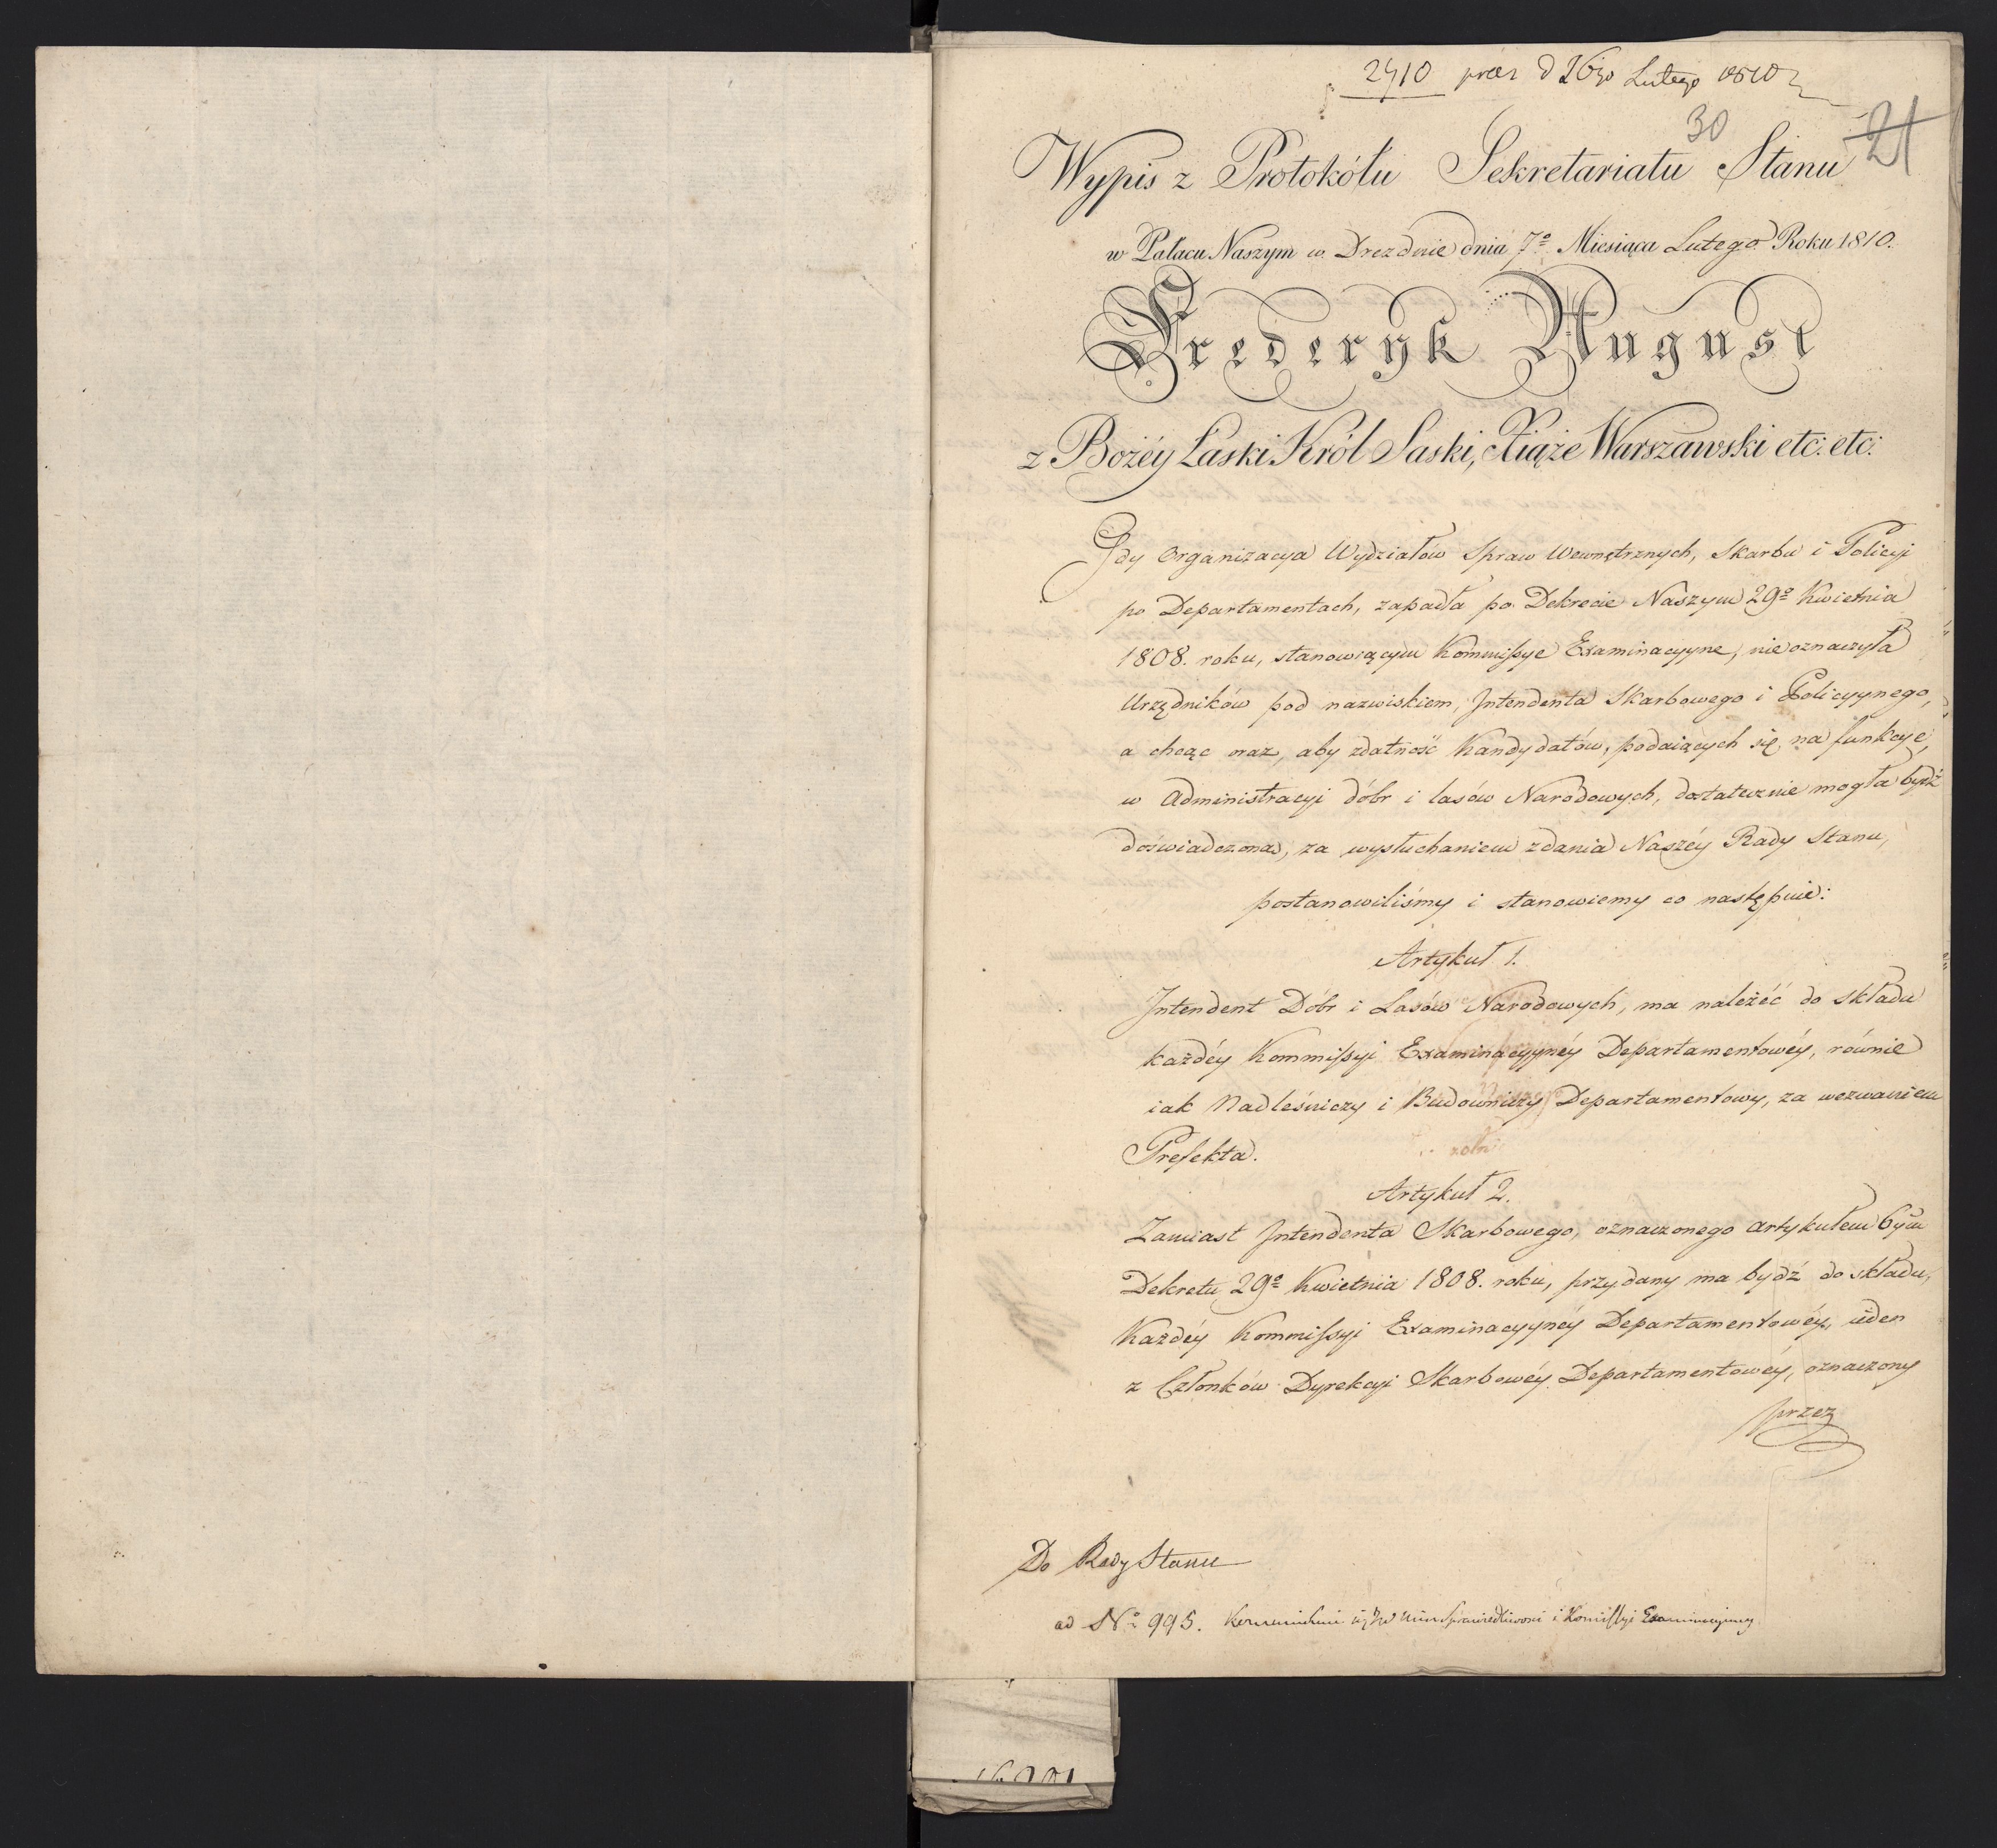 2410 præs d 26go Lutego 1810
30
21
Wypis z Protokółu Sekretariatu Stanu
w Pałacu Naszym w Dreznie dnia 7º Miesiąca Lutego Roku 1810.
Frederyk August
z Bożéy Łaski Król Saski, Xiąże Warszawski etc: etc:
Gdy Organizacya Wydziałów Spraw Wewnętrznych, Skarbu i Policyi
po Departamentach, zapadła po Dekrecie Naszym 29º Kwietnia
1808. roku, stanowiącym Kommissye Examinacyyne, nie oznaczyła
Urzędników pod nazwiskiem, Jntendenta Skarbowego i Policyynego,
a chcąc oraz, aby zdatność Kandydatów, podaiących się na funkcye,
w Administracyi dóbr i lasów Narodowych, dostatecznie mogła bydź
doświadczona, za wysłuchaniem zdania Naszéy Rady Stanu,
postanowiliśmy i stanowiemy co następuie:
Artykuł 1.
Jntendent Dóbr i Lasów Narodowych, ma należéć do składu
każdéy Kommissyi Examinacyynéy Departamentowéy, równie
iak Nadleśniczy i Budowniczy Departamentowy, za wezwaniem
Prefekta.
Artykuł 2.
Zamiast Jntendenta Skarbowego, oznaczonego artykułem 6ym
Dekretu 29º Kwietnia 1808. roku, przydany ma bydź do składu,
Każdéy Kommissyi Examinacyynéy Departamentowéy, ieden
z Członków Dyrekcyi Skarbowéy Departamentowéy, oznaczony
przez
Do Rady Stanu
ad Nº 995. Sprawiedliwości i Komissyi Examinacyiney